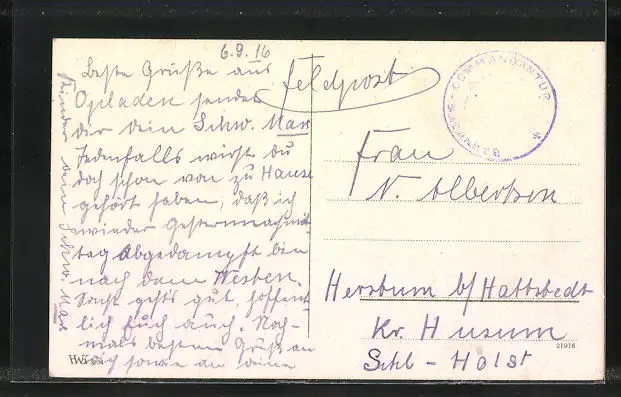 6.9.16
Beste Grüße aus
Opladen sendet
dir dein Schw. Max
Jedenfalls wirst du
doch schon von zu Hause
gehört haben, daß ich
wieder Gesternnachmit
tag abgedampft bin
nach dem Westen.
Sonst geht's gut, hoffent
lich Euch auch. Noch-
mals besten Gruß an
dich sowie an deine
Kinder dein Schw. Max
Feldpost
BAHNHOFS-COMMANDANTUR
Frau
N. Albertsen
Herstum b/Hattstedt
Kr. Husum
Schl-Holst
21916